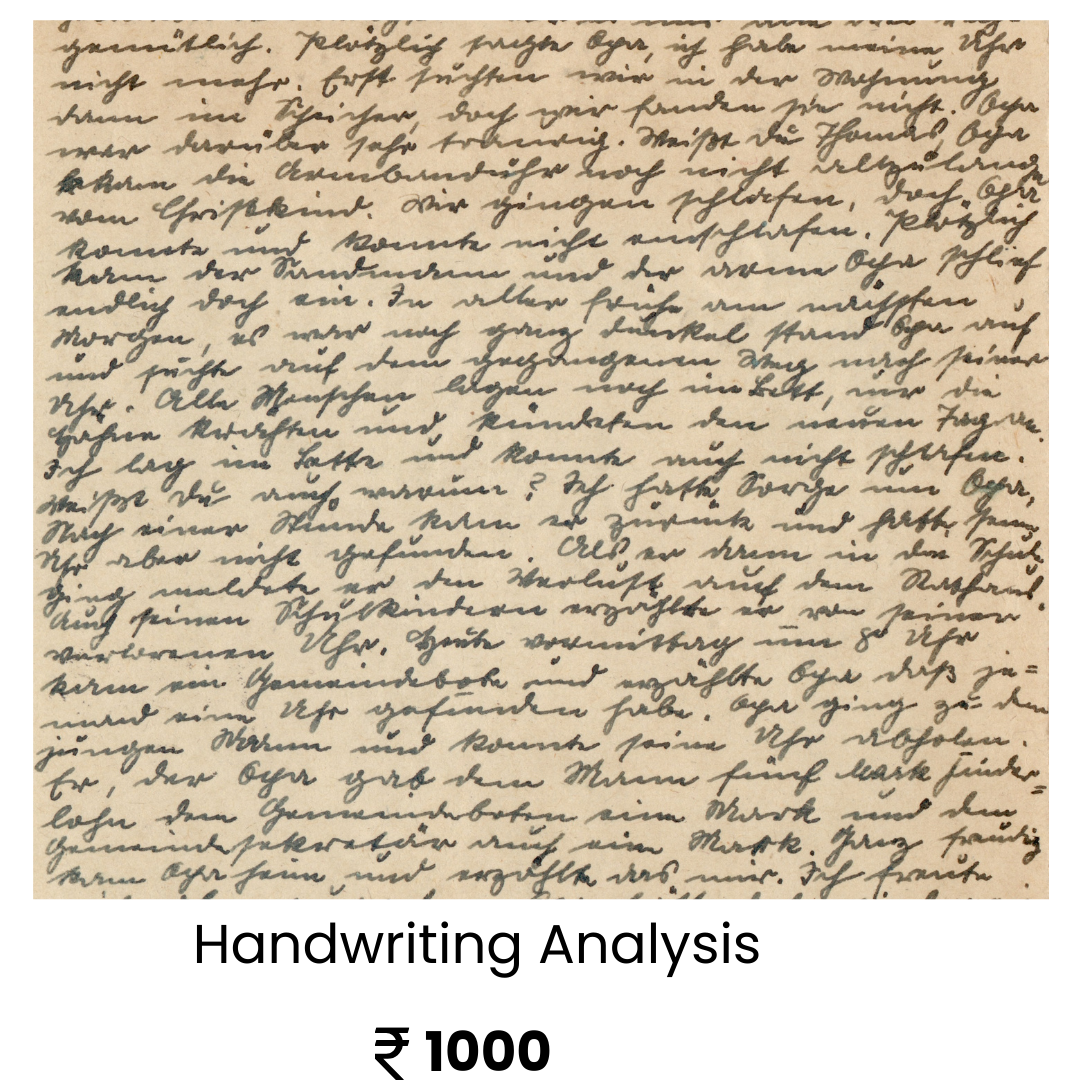 gemütlich. Plötzlich sagte Opa, ich habe meine Uhr
nicht mehr. Erst suchten wir in der Wohnung
dann im Speicher, doch wir fanden sie nicht. Opa
war darüber sehr traurig. Weißt du Thomas, Opa
bekam die Armbanduhr noch nicht allzulange
vom Christkind. Wir gingen schlafen, doch Opa
konnte und konnte nicht einschlafen. Plötzlich
kam der Sandmann und der arme Opa schlief
endlich doch ein. In aller frühe am nächsten
Morgen, es war noch ganz dunkel stand Opa auf
und suchte auf dem gegangenen Weg nach seiner
Uhr. Alle Menschen lagen noch im Bett, nur die
Hähne krähten und kündeten den neuen Tag an.
Ich lag im Bette und konnte auch nicht schlafen.
Weißt Du auch warum? Ich hatte Sorge um Opa,
Nach einer Stunde kam er zurück und hatte seine
Uhr aber nicht gefunden. Als er dann in die Schule
ging meldete er den Verlust auf dem Rathaus.
Auch seinen Schulkindern erzählte er von seiner
verlorenen Uhr. Heute vormittag um 8° Uhr
kam ein Gemeindebote und erzählte Opa daß je=
mand eine Uhr gefunden habe. Opa ging zu dem
jungen Mann und konnte seine Uhr abholen.
Er, der Opa gab dem Mann fünf Mark Finder=
lohn dem Gemeindeboten eine Mark und dem
Gemeindesekretär auch eine Mark. Ganz freudig
kam Opa heim und erzählte das mir. Ich freute
Handwriting Analysis
₹ 1000